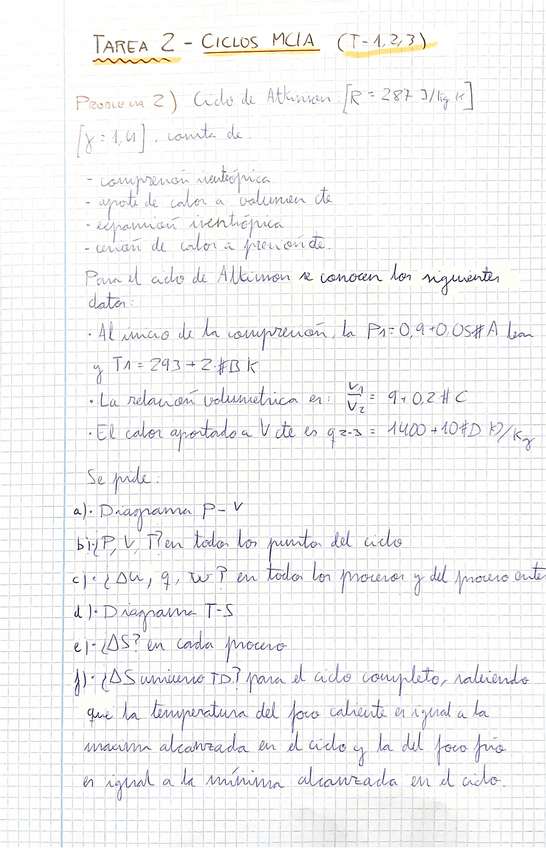 TAREA 2 - CICLOS MCIA (T-1,2,3)
PROBLEMA 2) Ciclo de Atkinson. [R = 287 J/kg K]
[γ = 1,4], consta de
- compresión isentrópica
- aporte de calor a volumen cte
- expansión isentrópica
- cesión de calor a presión cte.
Para el ciclo de Atkinson se conocen los siguientes
datos:
· Al inicio de la compresión, la P1 = 0,9 + 0,05#A bar
y T1 = 293 + 2·#B K
· La relación volumétrica es: V1/V2 = 9 + 0,2 #C
· El calor aportado a V cte es q2-3 = 1400 + 10#D KJ/Kg
Se pide:
a)· Diagrama P-V
b)·¿P, V, T? en todos los puntos del ciclo
c)·¿Δu, q, w? en todos los procesos y del proceso
d)· Diagrama T-S
e)·¿ΔS? en cada proceso
f)·¿ΔS universo TD? para el ciclo completo, sabiendo
que la temperatura del foco caliente es igual a la
maxima alcanzada en el ciclo y la del foco frío
es igual a la mínima alcanzada en el ciclo.